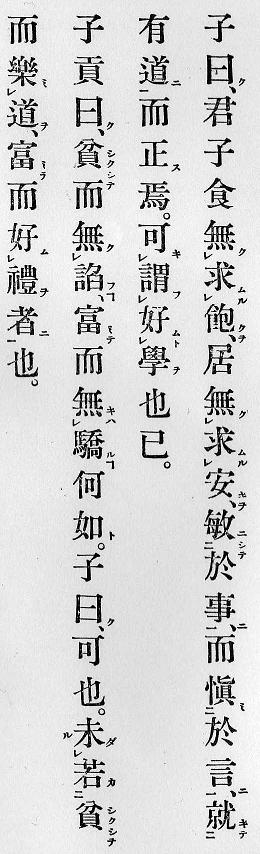 子曰、君子食無求飽、居無求安、敏於事、而愼於言、就
有道而正焉。可謂好學也已。
子貢曰、貧而無諂、富而無驕何如。子曰、可也。未若貧
而樂道、富而好禮者也。